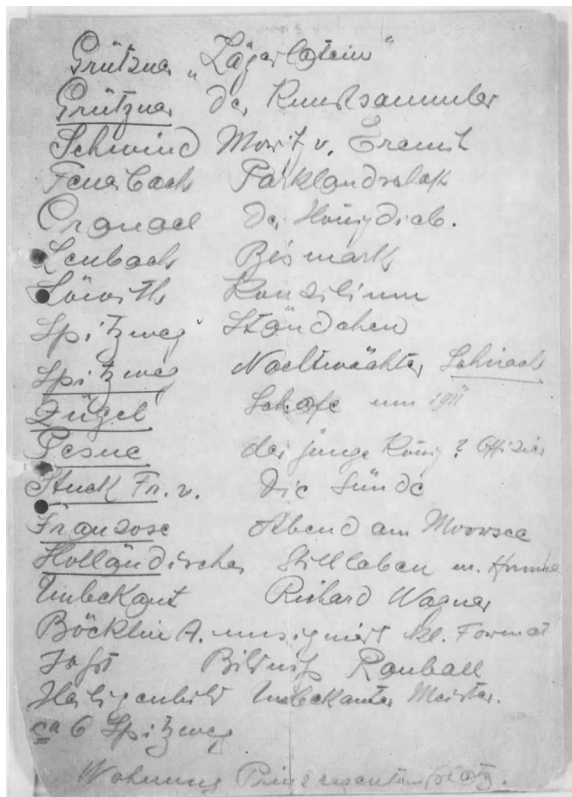 Grützner „Jägerlatein“
Grützner der Kunstsammler
Schwind Moritz v. Eremit
Feuerbach Parklandschaft
Cranach Der Honigdieb.
Lenbach Bismark
Löwith Konsilium
Spitzweg Ständchen
Spitzweg Nachtwächter
Zügel Schafe um 1911
Pesne der junge König? Offizier
Stuck Fr. v. Die Sünde
Franzose Abend am Moorsee
Holländischer Stillleben m. Hummer
Unbekant Richard Wagner
Böcklin A. unsigniert kl. Format
Bildniß Raubal
Heiligenbild Unbekanter Meister.
ca 6 Spitzweg
Wohnung Prinzregentenplatz.